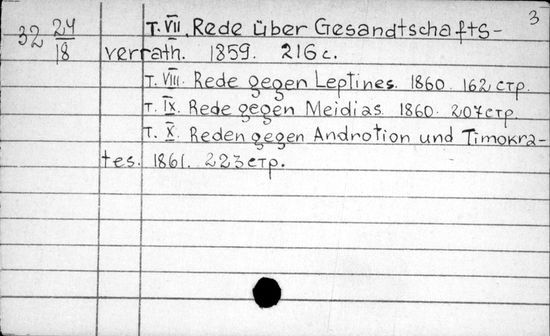 3
32 24/18
т. VII. Rede über Gesandtschafts-
verrath. 1859. 216 с.
т. VIII. Rede gegen Leptines. 1860. 162 стр.
т. IX. Rede gegen Meidias. 1860. 207 стр.
т. X. Reden gegen Androtion und Timokra-
tes. 1861. 223 стр.